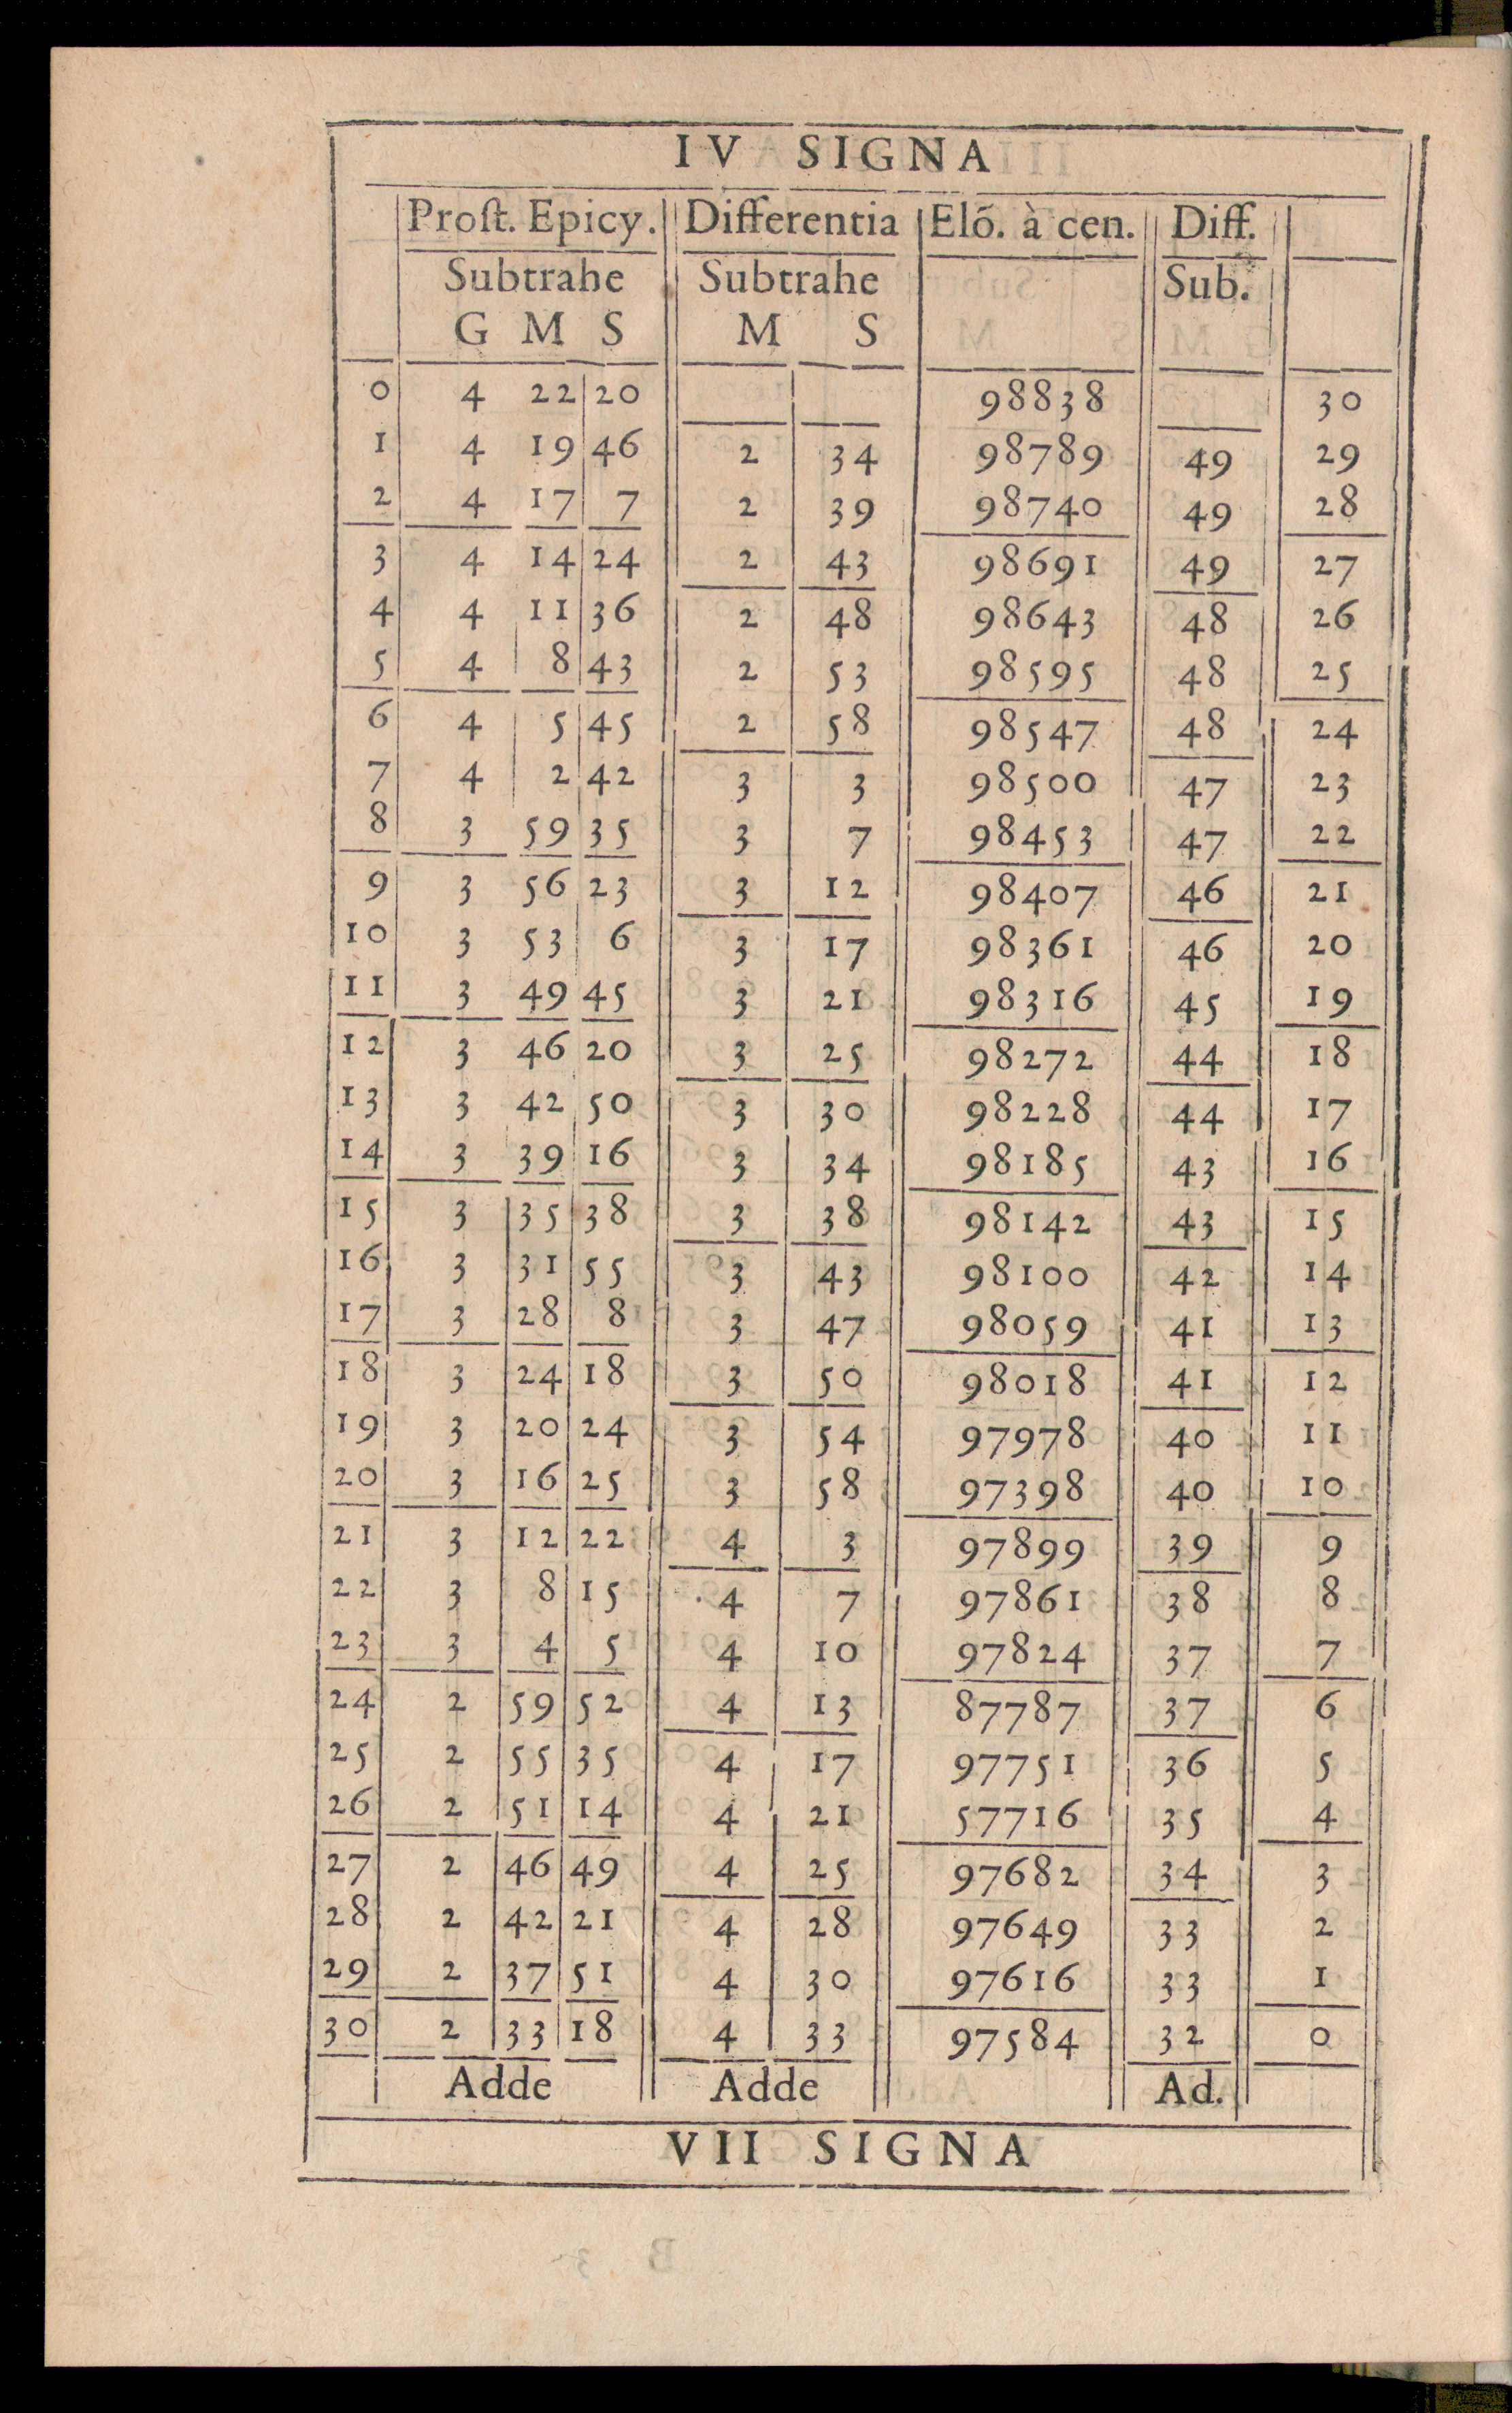 IV SIGNA
Proſt. Epicy. Differentia Elõ. à cen. Diff.
Subtrahe Subtrahe Sub.
G M S M S
0 4 22 20 98838 30
1 4 19 46 2 34 98789 49 29
2 4 17 7 2 39 98740 49 28
3 4 14 24 2 43 98691 49 27
4 4 11 36 2 48 98643 48 26
5 4 8 43 2 53 98595 48 25
6 4 5 45 2 58 98547 48 24
7 4 2 42 3 3 98500 47 23
8 3 59 35 3 7 98453 47 22
9 3 56 23 3 12 98407 46 21
10 3 53 6 3 17 98361 46 20
11 3 49 45 3 21 98316 45 19
12 3 46 20 3 25 98272 44 18
13 3 42 50 3 30 98228 44 17
14 3 39 16 3 34 98185 43 16
15 3 35 38 3 38 98142 43 15
16 3 31 55 3 43 98100 42 14
17 3 28 8 3 47 98059 41 13
18 3 24 18 3 50 98018 41 12
19 3 20 24 3 54 97978 40 11
20 3 16 25 3 58 97398 40 10
21 3 12 22 4 3 97899 39 9
22 3 8 15 4 7 97861 38 8
23 3 4 5 4 10 97824 37 7
24 2 59 52 4 13 87787 37 6
25 2 55 35 4 17 97751 36 5
26 2 51 14 4 21 57716 35 4
27 2 46 49 4 25 97682 34 3
28 2 42 21 4 28 97649 33 2
29 2 37 51 4 30 97616 33 1
30 2 33 18 4 33 97584 32 0
Adde Adde Ad.
VII SIGNA